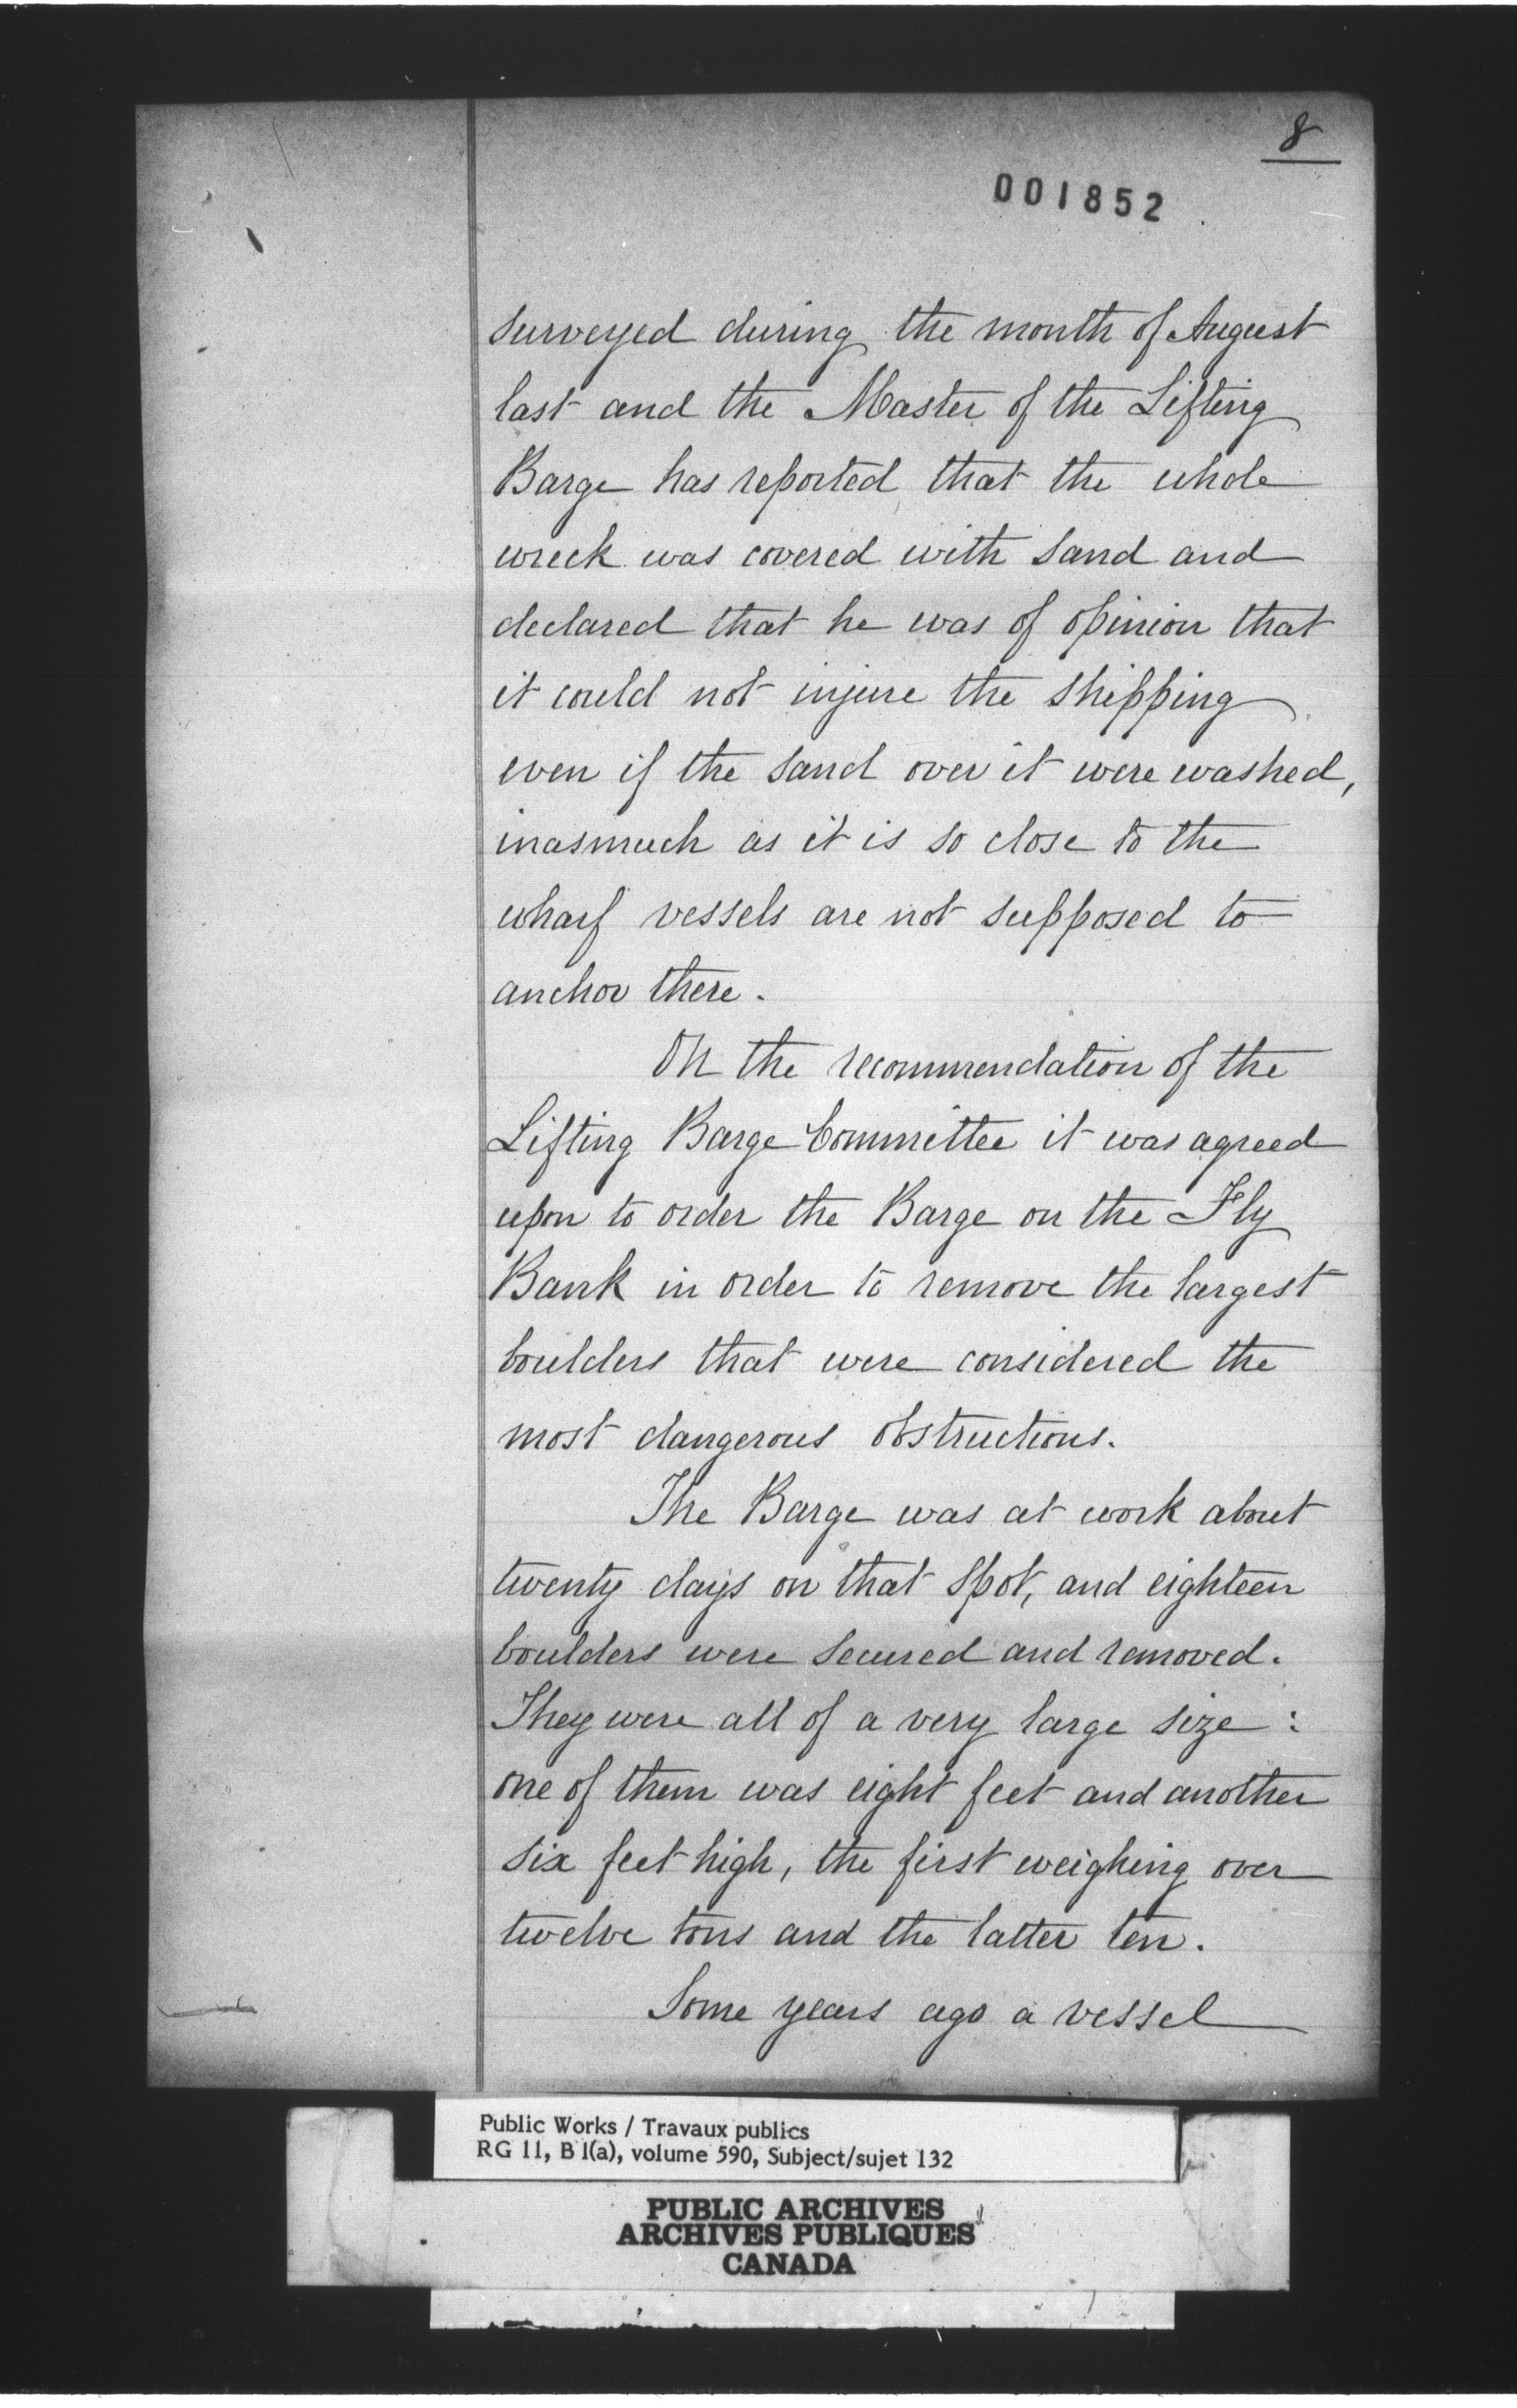 8
001852
surveyed during the month of August
last and the Master of the Lifting
Barge has reported that the whole
wreck was covered with sand and
declared that he was of opinion that
it could not injure the shipping
even if the sand over it were washed,
inasmuch as it is so close to the
wharf vessels are not supposed to
anchor there.
On the recommendation of the
Lifting Barge Committee it was agreed
upon to order the Barge on the Fly
Bank in order to remove the largest
boulders that were considered the
most dangerous obstructions.
The Barge was at work about
twenty days on that spot, and eighteen
boulders were secured and removed.
They were all of a very large size :
one of them was eight feet and another
six feet high, the first weighing over
twelve tons and the latter ten.
Some years ago a vessel
Public Works / Travaux publics
RG 11, B 1(a), volume 590, Subject/sujet 132
PUBLIC ARCHIVES
ARCHIVES PUBLIQUES
CANADA